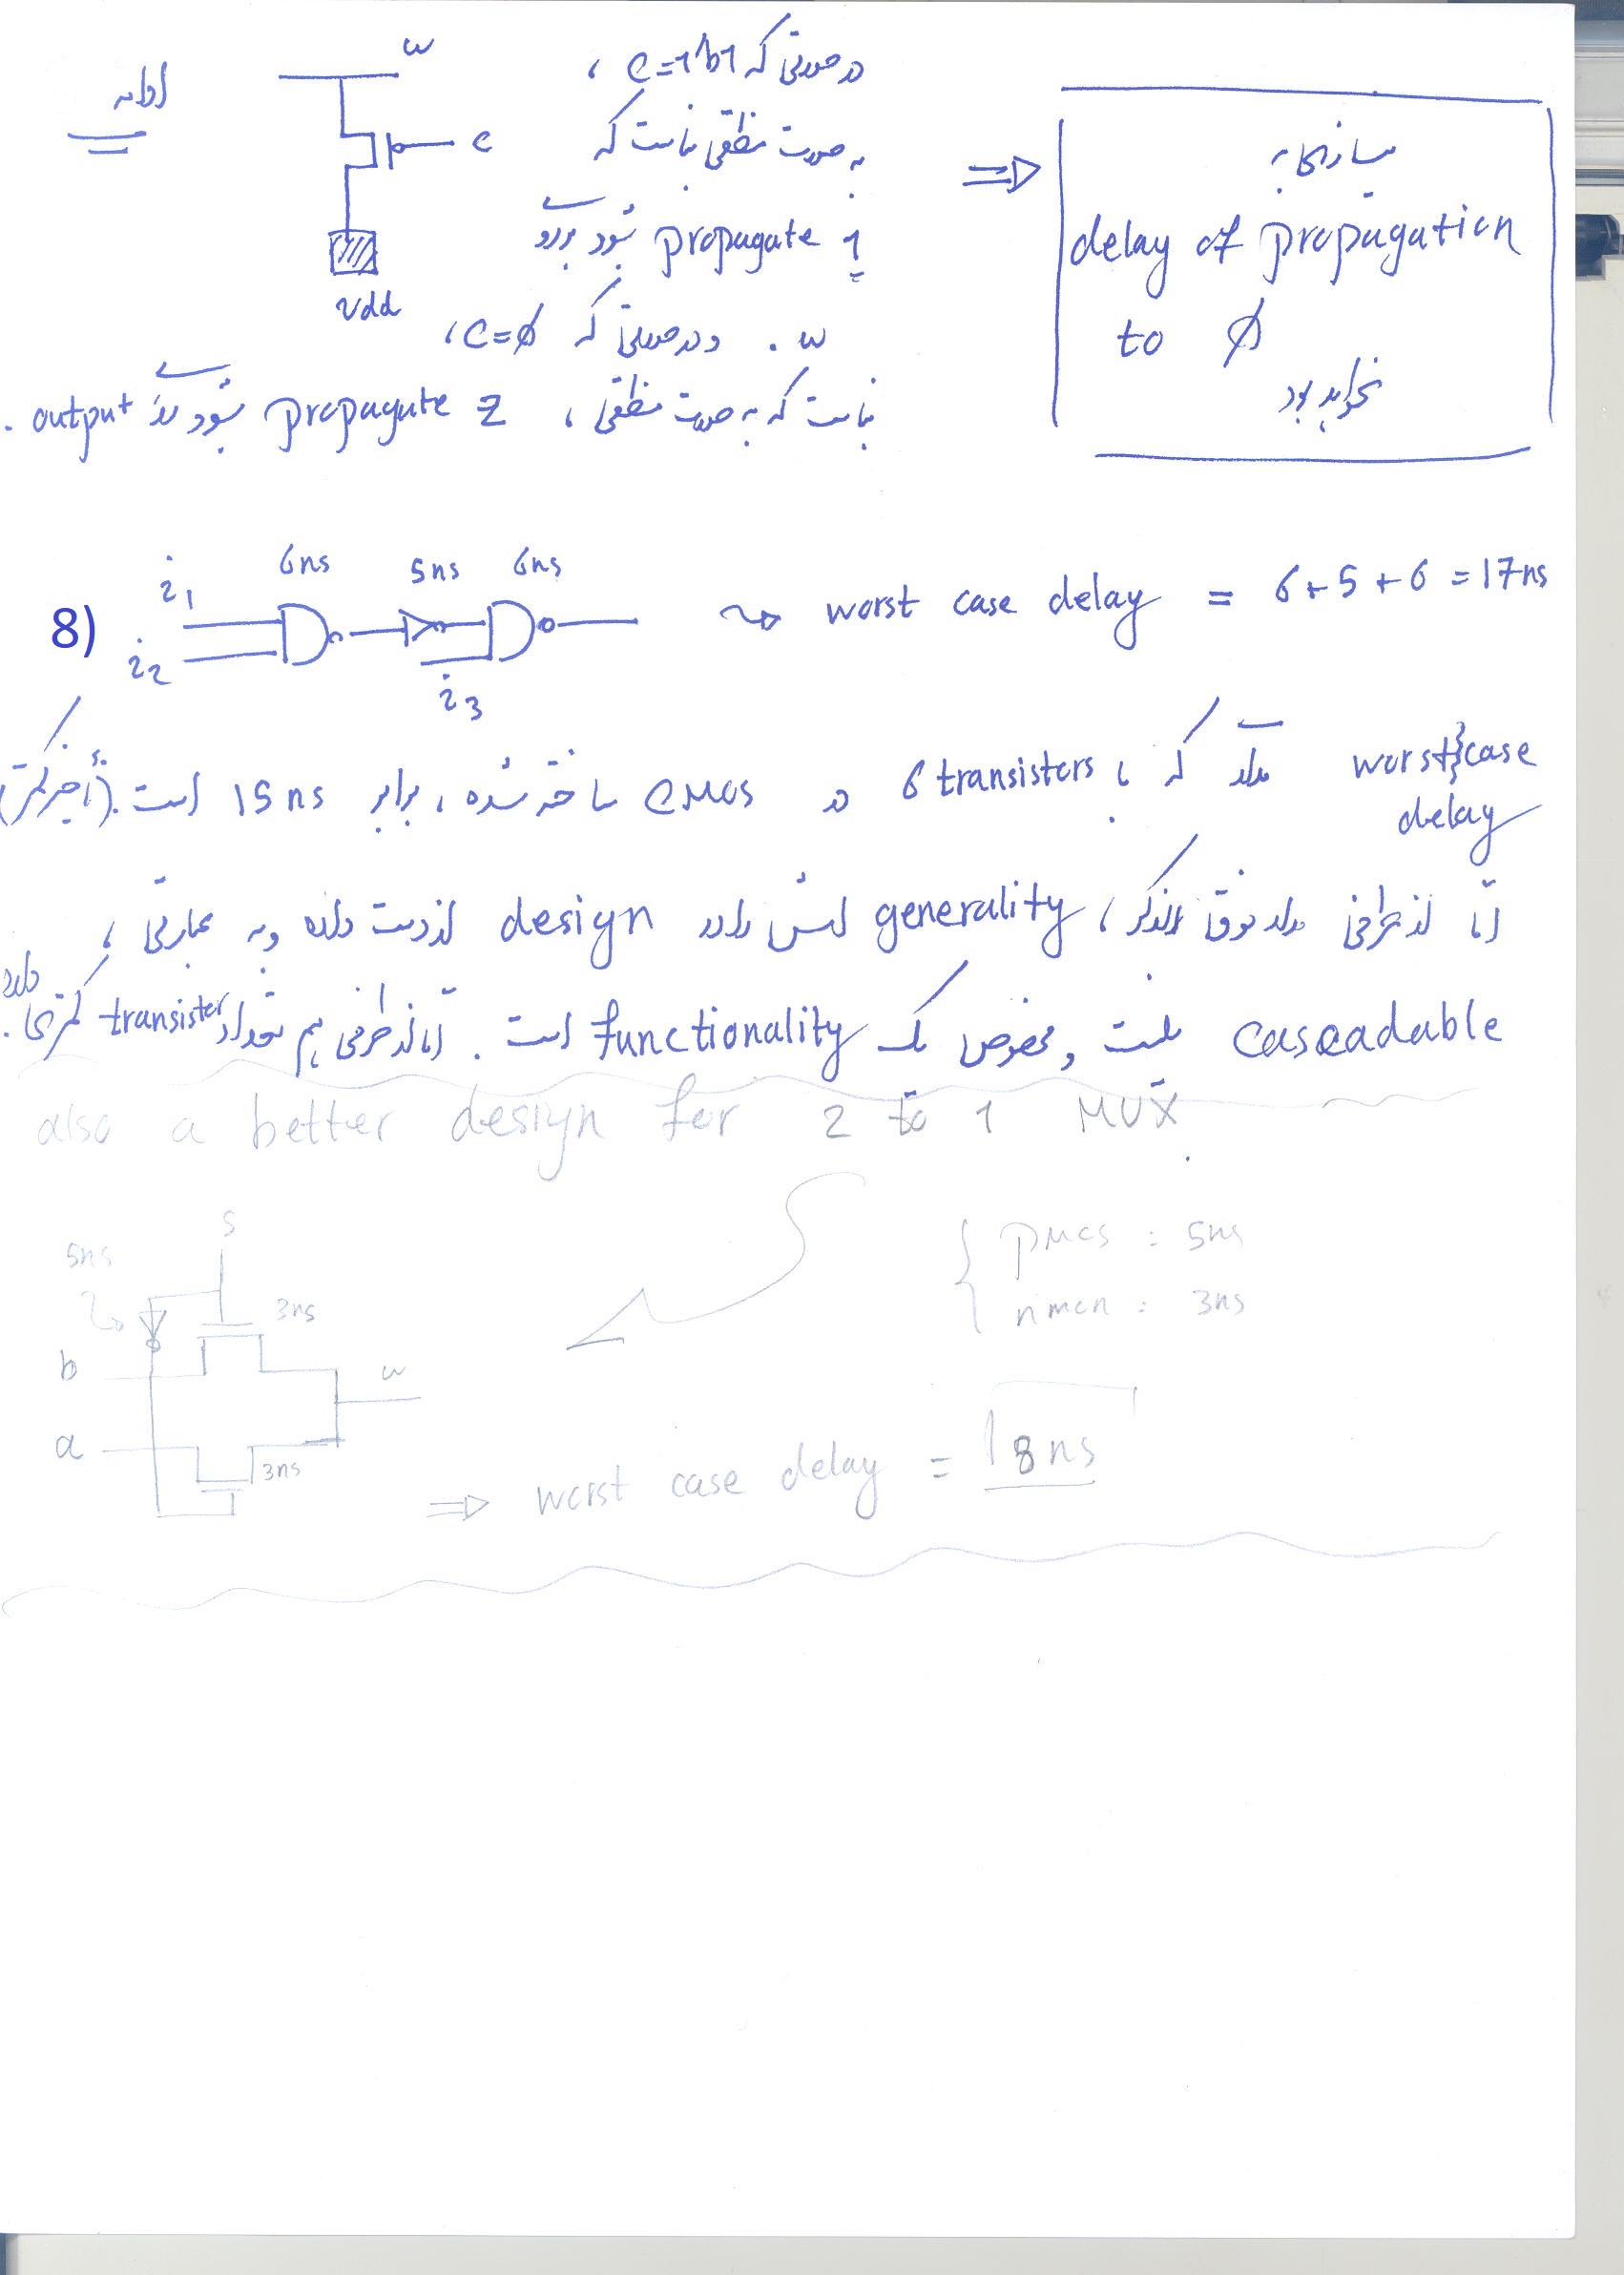 ادامه
w
c
Vdd
در صورتی که c=1'b1 ،
به صورت منطقی نیاست که
1 propagate شود برود
w . و در صورتی که c=∅ ،
نیاست که به صورت منطقی ، Z propagate شود output .
⇒
نیازی به
delay of propagation
to ∅
نخواهد بود
8)
i1
i2
i3
6ns 5ns 6ns
⇝ worst case delay = 6+5+6 = 17ns
worst case delay مدار که با 6 transistors در CMOS ساخته شده ، برابر 15 ns است . (تأخیر کمتر)
اما از طرفی مدار فوق الذکر ، generality اش را در design از دست داده و به عبارتی ،
cascadable نیست و مخصوص یک functionality است . اما از طرفی هم تعداد transistor کمتری دارد .
also a better design for 2 to 1 MUX.
S
5ns
3ns
b
w
a
3ns
{ pmos : 5ns
nmcn : 3ns
⇒ worst case delay = 8ns